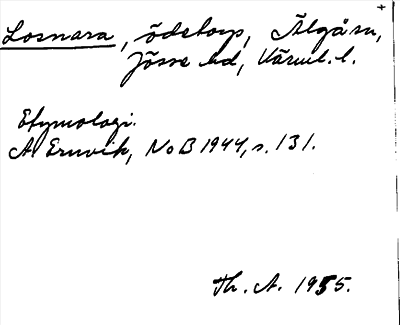 Losnara, ödetorp, Älgå sn,
Jösse hd, Värml. l.
Etymologi.
A Ernvik, NoB 1944, s. 131.
Th. A. 1955.